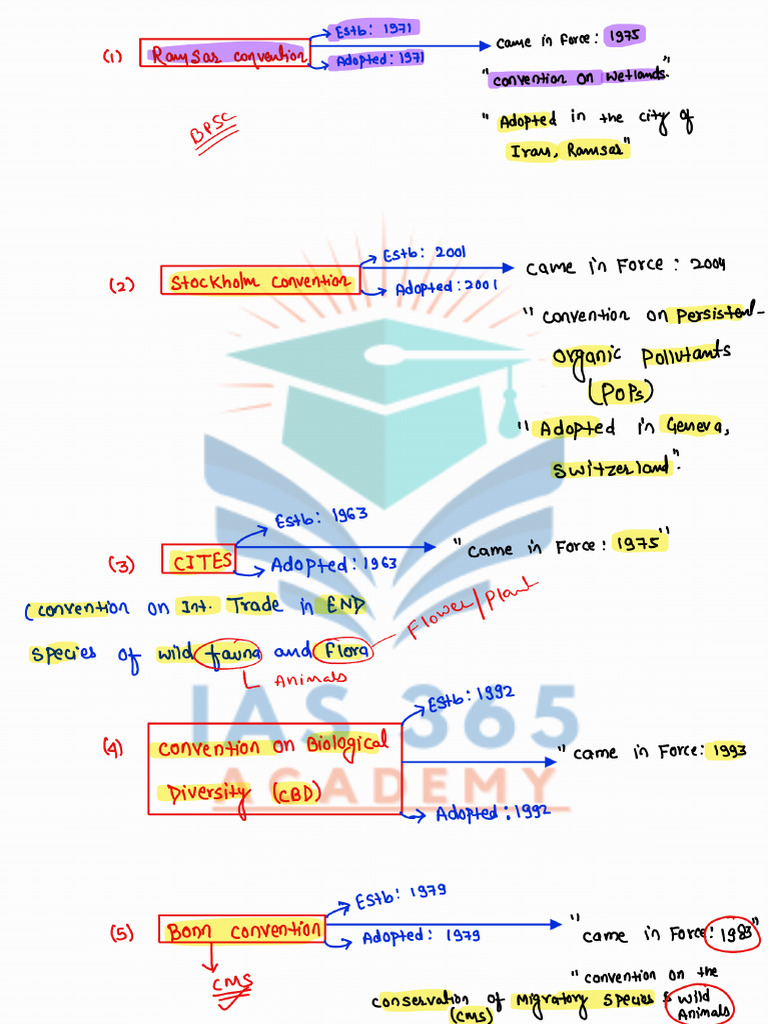 (1) Ramsar convention
Estb: 1971
Adopted: 1971
came in Force: 1975
"convention on wetlands"
" Adopted in the city of
Iran, Ramsar"
BPSC
(2) Stockholm convention
Estb: 2001
Adopted: 2001
came in Force : 2004
" convention on Persistent
organic Pollutants
(POPs)
" Adopted in Geneva,
Switzerland".
(3) CITES
Estb: 1963
Adopted: 1963
"came in Force: 1975"
(convention on Int. Trade in END
species of wild fauna and flora
Flower/Plant
Animals
IAS 365
ACADEMY
(4) convention on Biological
Diversity (CBD)
Estb: 1992
Adopted: 1992
" came in Force: 1993
(5) Bonn convention
Estb: 1979
Adopted: 1979
" came in Force: 1983"
CMS
" convention on the
conservation of Migratory species & wild
(CMS) Animals